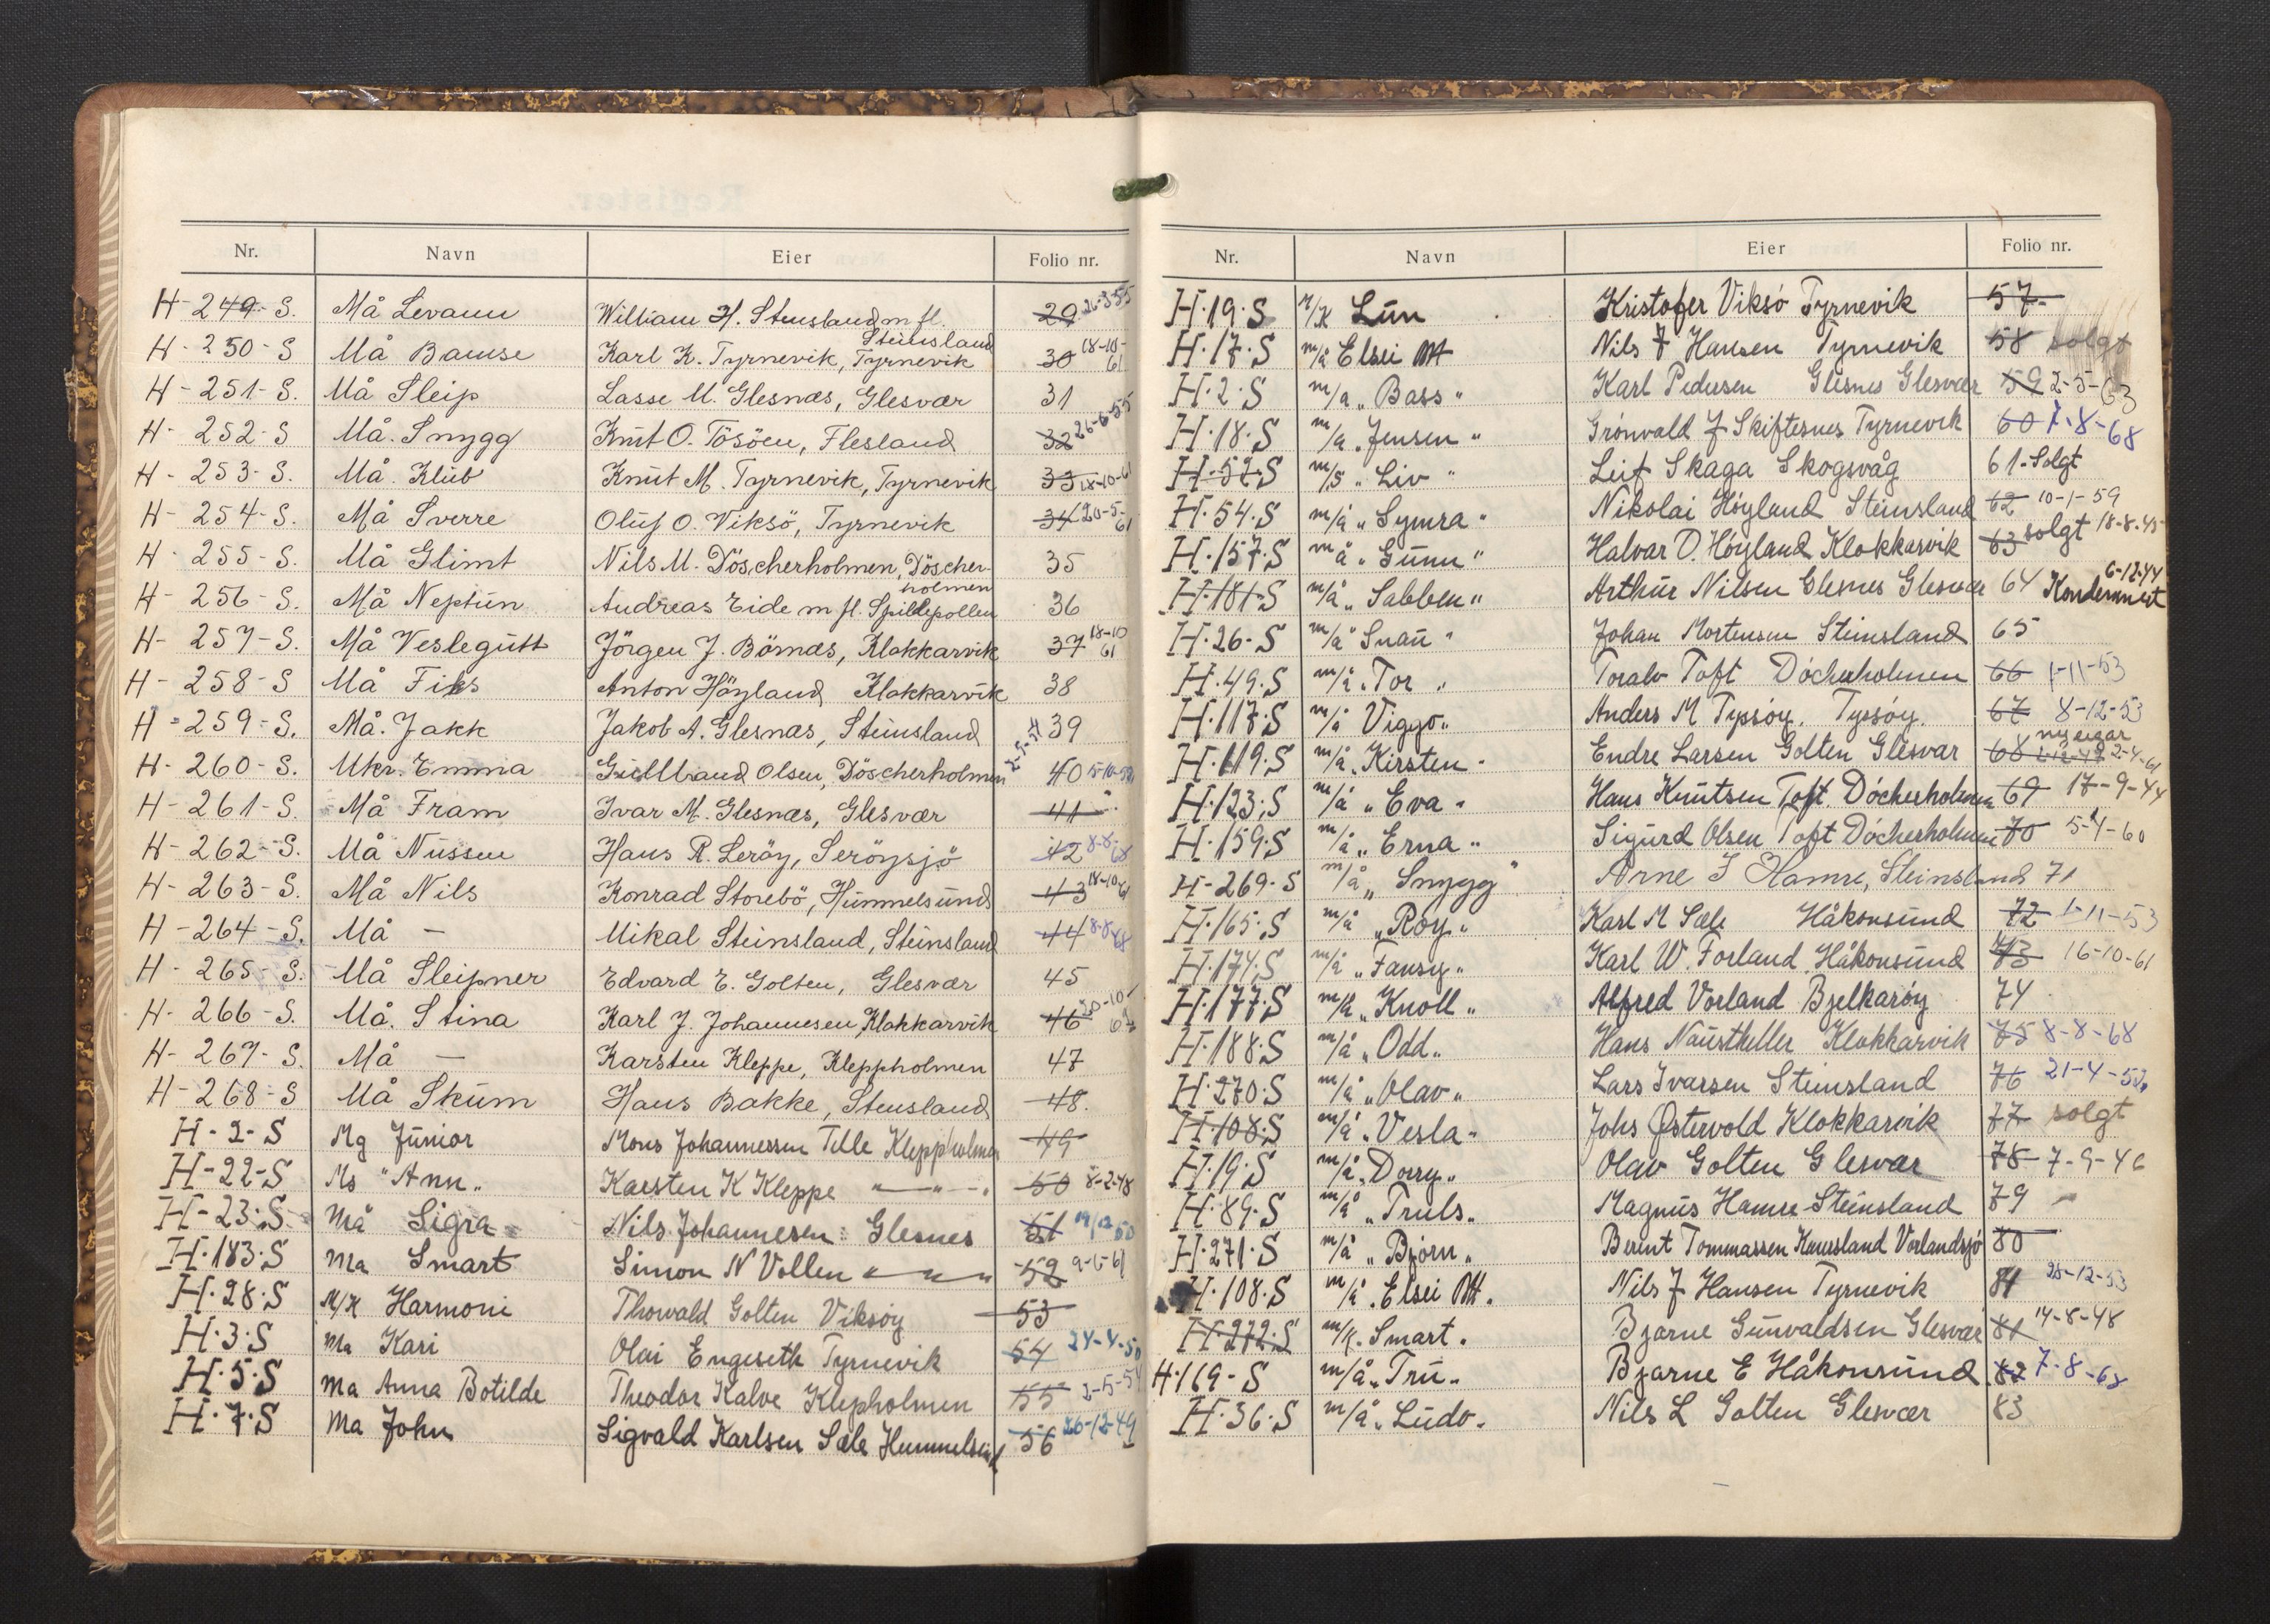 Nr. Navn Eier Folio nr.
H-249-S. Må Levann William H. Stensland m fl. Steinsland 29 26-3-55
H-250-S Må Bamse Karl K. Tyrnevik, Tyrnevik 30 18-10-61
H-251-S. Må Sleip Lasse M. Glesnæs, Glesvær 31
H-252-S Må. Snygg Knut O. Tösöen, Flesland 32 26-6-55
H-253-S. Må. Klub Knut M. Tyrnevik, Tyrnevik 33 18-10-61
H-254-S. Må Sverre Oluf O. Viksö, Tyrnevik 34 20-5-61
H-255-S. Må Glimt Nils M. Döscherholmen, Döscherholmen 35
H-256-S. Må Neptun Andreas Eide m fl. Spildepollen 36
H-257-S. Må Veslegutt Jörgen J. Börnæs, Klokkarvik 37 18-10 61
H-258-S Må Fiks Anton Höyland Klokkarvik 38
H-259-S. Må. Jakk Jakob A. Glesnæs, Steinsland 39
H-260-S. Mkr. Emma Guldbrand Olsen, Döscherholmen 40
H-261-S Må Fram Ivar M. Glesnæs, Glesvær 41
H-262-S. Må Nussen Hans R. Leröy, Leröysjö 42 8-8-68
H-263-S. Må Nils Konrad Storebö, Hummelsund 43 18-10-61
H-264-S. Må — Mikal Steinsland, Steinsland 44 8-8-68
H-265-S. Må Sleipner Edvard E. Golten, Glesvær 45
H-266-S. Må. Stina Karl J. Johannesen, Klokkarvik 46
H-267-S. Må — Karsten Kleppe, Kleppholmen 47
H-268-S Må Skum Hans Bakke, Stensland 48.
H-2-S Mg Junior Mons Johannessen Telle Kleppholmen 49
H-22-S Ms "Ann" Karsten K Kleppe —"— 50 8-2-48
H-23-S Må Sigra Nils Johannesen Glesnes 51 19/12 50
H-183-S Ma Smart Simon N Vollen " " " 52 9-6-61
H-28-S M/K Harmoni Thorvald Golten Viksøy 53
H-3-S Ma Kari Olai Engeseth Tyrnevik 54 24-4-50
H-5-S Ma Anna Botilde Theodor Kalve Klepholmen 55 2-5-54
H-7-S Ma John Sigvald Karlsen Sæle Hummelsund 56 26-12-49
Nr. Navn Eier Folio nr.
H-19-S M/K Lun Kristofer Viksø Tyrnevik 57
H-17-S m/å Elsei Nils J Hansen Tyrnevik 58 solgt
H-2-S m/a "Bass" Karl Pedersen Glesnes Glesvær 59 2-5-63
H-18-S m/a "Jensen" Grønvald J Skiftesnes Tyrnevik 60 1-8-68
H-52-S m/s "Liv" Leif Skaga Skogsvåg 61 - Solgt
H-54-S m/å "Symra" Nikolai Høyland Steinsland 62 10-1-59
H-157-S m/å "Gunn" Halvar O. Høyland Klokkarvik 63 solgt 18-8-45
H-181-S m/å "Sabben" Arthur Nilsen Glesnes Glesvær 64 Kondemnert 6-12-44
H-26-S m/å "Snau" Johan Mortensen Steinsland 65
H-49-S m/å "Tor" Toralv Toft Döcherholmen 66 1-11-53
H-117-S m/å Viggo" Anders M Tyssøy. Tyssøy. 67 8-12-53
H-119-S m/å "Kirsten" Endre Larsen Golten Glesvær 68 ny eigar 2-4-61
H-123-S m/å "Eva" Hans Knutsen Toft Döcherholmen 69 17-9-44
H-159-S m/å "Erna" Sigurd Olsen Toft Döcherholmen 70 5-4-60
H-269-S m/å "Snygg" Arne J Hamre, Steinsland 71
H-165-S m/å "Roy" Karl M Sæle Håkonsund 72 1-11-53
H-174-S m/å "Fansy" Karl W. Forland Håkonsund 73 16-10-61
H-177-S m/k "Knoll" Alfred Vorland Bjelkarøy 74
H-188-S m/å "Odd" Hans Naustheller Klokkarvik 75 8-8-68
H-270-S m/å "Olav" Lars Ivarsen Steinsland 76 21-4-52
H-108-S m/å "Vesla" Johs Østervold Klokkarvik 77 solgt
H-19-S m/å "Dorry" Olav Golten Glesvær 78 7-9-46
H-89-S m/å "Truls" Magnus Hamre Steinsland 79
H-271-S m/å "Bjørn" Berent Tommassen Kauersland Vorlandsjø 80
H-108-S m/å "Elsei Nils J Hansen Tyrnevik 81 28-12-53
H-272-S m/k "Smart" Bjarne Gunvaldsen Glesvær 81 14-8-48
H-169-S m/å "Tru" Bjarne E Håkonsund 82 7-8-68
H-36-S m/å "Ludo" Nils L Golten Glesvær 83